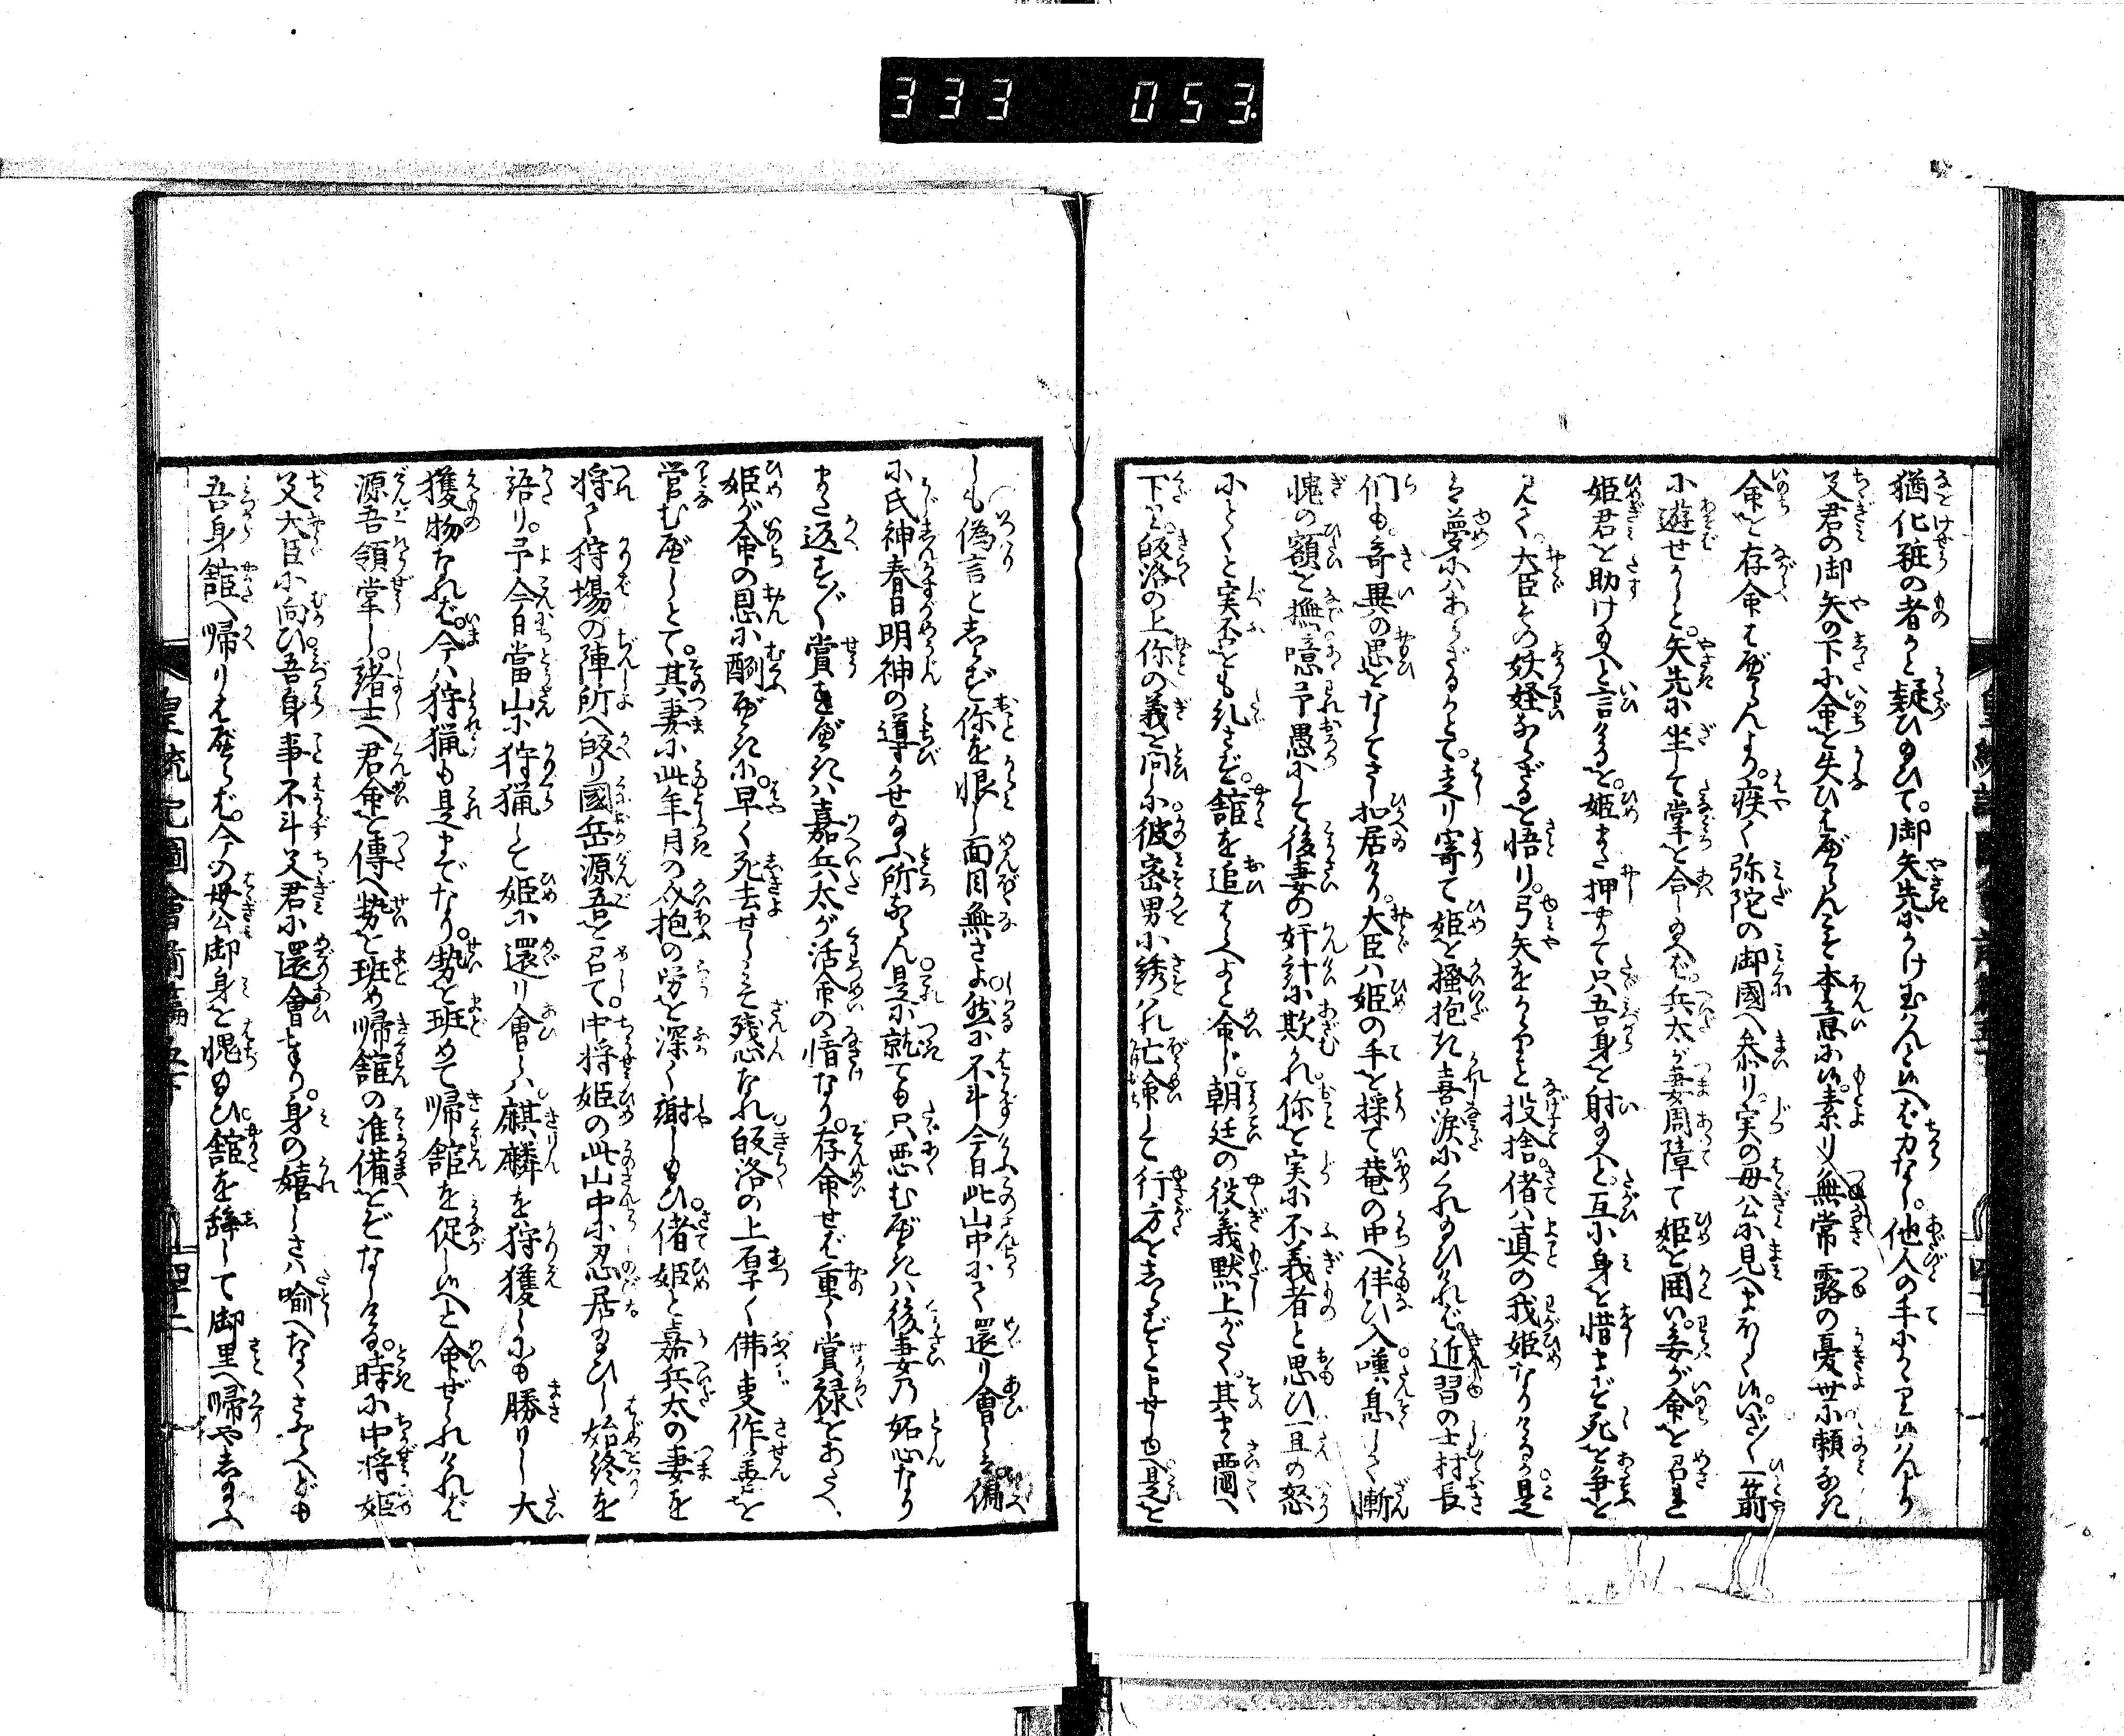 333 053
猶化粧の者かと疑ひ給ひて。御矢先にかけ玉はんと候へば力なし。他人の手にかゝり候はんより
父君の御矢の下に命を失ひ候はんこそ本意に候。素より無常露の憂世に頼なき
命を存命候はんより。疾く弥陀の御國へ参り。実の母公に見へまほしく候。いざ〳〵一箭
に遊せかしと。矢先に坐して掌を合し給へば。兵太が妻周障て姫を囲い。妾が命を召れ
姫君を助け給へと言けるを。姫また押やりて只吾身を射給へと。互に身を惜まず死を争を
見て。大臣その妖怪ならざるを悟り。弓矢をからりと投捨偖は真の我姫なりけるか是
は夢にはあらざるかとて。走り寄て姫を掻抱き喜涙にくれ給ひければ。近習の士村長
們も。奇異の思をなしてさし扣居けり。大臣は姫の手を採て菴の中へ伴ひ入嘆息して慚
愧の額を撫噫予愚にして後妻の奸計に欺かれ。你を実に不義者と思ひ一旦の怒
にとくと実否をも糺さず。舘を追はらへよと命じ。朝廷の役義黙止がたく。其まゝ西國へ
下り。皈洛の上你の義を問しに彼密男に誘はれ亡命して行方をしらずと申せしゆへ是を
しも偽言としらず你を恨し面目無さよ。然に不斗今日此山中にて還り會しは偏
に氏神春日明神の導かせ給ふ所ならん是に就ても只悪むべきは後妻の妬心なり
また返す〴〵賞すべきは嘉兵太が活命の情なり。存命せば重く賞禄をあたへ、
姫が命の恩に酬べきに。早く死去せしこそ残心なれ皈洛の上厚く佛叓作善を
営むべしとて。其妻に此年月の介抱の労を深く謝し給ひ。偖姫と嘉兵太の妻を
将て狩場の陣所へ皈り國岳源吾を召て。中将姫の此山中に忍居給ひし始終を
語り。予今日當山に狩猟して姫に還り會しは。麒麟を狩獲しにも勝りし大
獲物なれば。今は狩猟も是までなり。勢を班めて帰舘を促し候へと命ぜられければ
源吾領掌し。諸士へ君命を傳へ勢を班め帰舘の准備をぞなしける。時に中将姫
父大臣に向ひ。吾身事不斗父君に還會まいり。身の嬉しさは喩へなくさふらへども
吾身舘へ帰り候はゞ。今の母公御身を愧給ひ。舘を辞して御里へ帰や志給はん